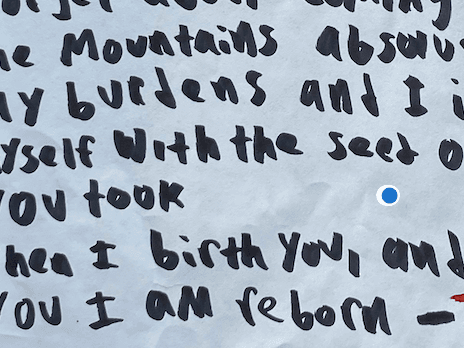 the Mountains absorb
my burdens and I
myself With the seed
you took
When I birth you, and
you I am reborn —